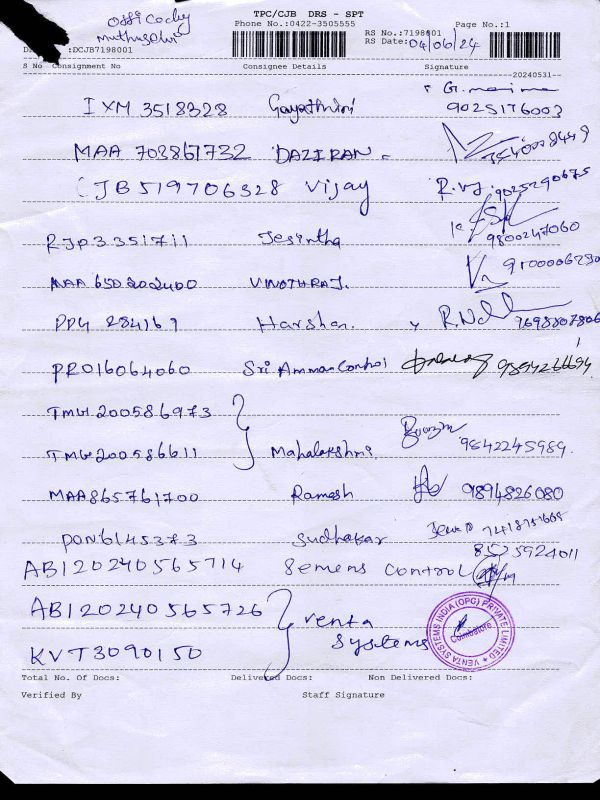 TPC/CJB DRS - SPT
Phone No.:0422-3505555
Muthuselvi
RS No.:7198001
Page No.:1
:DCJB7198001
RS Date: 04/06/24
S No Consignment No Consignee Details Signature
20240531
IXM 3518328 Gayathiri
9025176003
MAA 703861732 DAZIRAN
CJB 519706328 Vijay R.VJ 9025290675
RJP3351711 Jesintha 9800247060
MAA 650202400 VINOTHRAJ. 9100006290
PDY 284169 Harshan. 9698807806
PRO16064060 Sri Amman Control 9894266694
TMW 200586973
TMW 200586611 Mahalakshmi 9842245989.
MAA865761700 Ramesh 9894826080
PON6145373 Sudhakar
8525924011
AB120240565714 Semens Control
AB120240565726 Venta
Systems
KVT3090150
VENTA SYSTEMS INDIA (OPC) PRIVATE LIMITED
Coimbatore
Total No. Of Docs: Delivered Docs: Non Delivered Docs:
Verified By Staff Signature